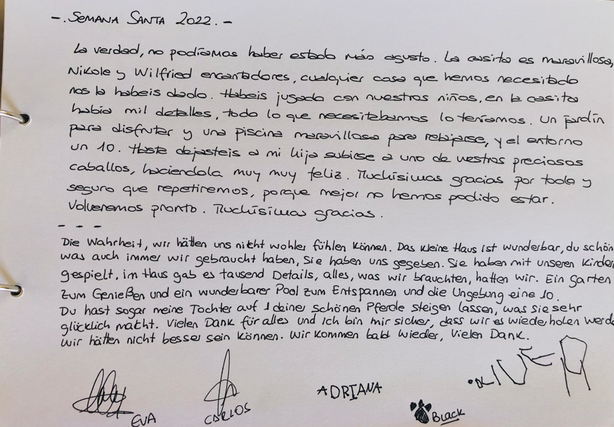 -. SEMANA SANTA 2022.-
La verdad, no podíamos haber estado más agusto. La casita es maravillosa,
Nikole y Wilfried encantadores, cualquier cosa que hemos necesitado
nos la habeis dado. Habeis jugado con nuestros niños, en la casita
había mil detalles, todo lo que necesitabamos lo teníamos. Un jardín
para disfrutar y una piscina maravillosa para relajarse, y el entorno
un 10. Hasta dejasteis a mi hija subirse a uno de vuestros preciosos
caballos, haciendola muy muy feliz. Muchísimas gracias por todo y
seguro que repetiremos, porque mejor no hemos podido estar.
Volveremos pronto. Muchísimas gracias.
- - -
Die Wahrheit, wir hätten uns nicht wohler fühlen können. Das kleine Haus ist wunderbar, du schön
was auch immer wir gebraucht haben, Sie haben uns gegeben. Sie haben mit unseren Kinder
gespielt, im Haus gab es tausend Details, alles, was wir brauchten, hatten wir. Ein Garten
zum Genießen und ein wunderbarer Pool zum Entspannen und die Ungebung eine 10.
Du hast sogar meine Tochter auf 1 deiner schönen Pferde steigen lassen, was sie sehr
glücklich macht. Vielen Dank für alles und Ich bin mir sicher, dass wir es wiederholen werde
Wir hätten nicht besser sein können. Wir kommen bald wieder, Vielen Dank.
EVA CARLOS ADRIANA Black OLIVER